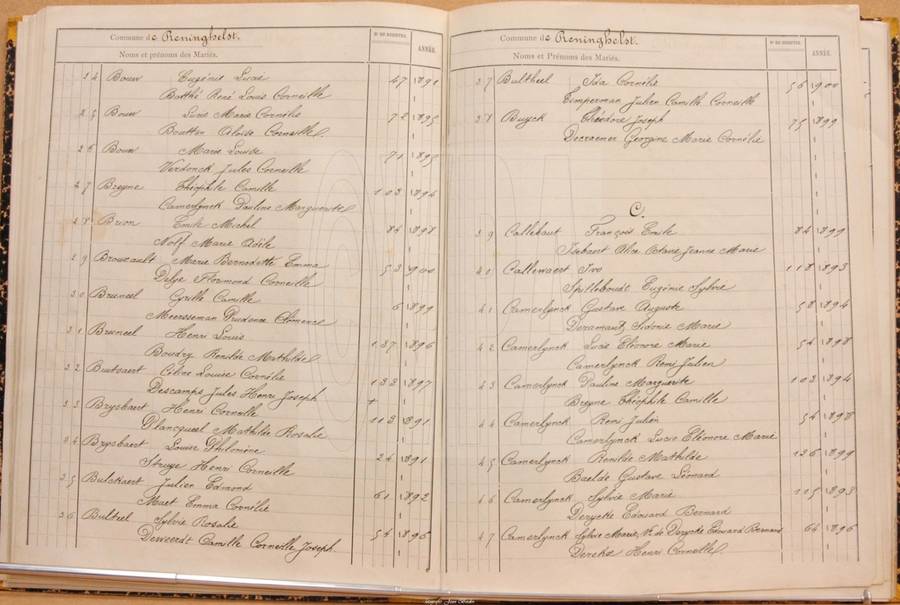 Commune de Reninghelst.
Noms et prénoms des Mariés.
Nº DE REGISTRE.
ANNÉE.
24 Bouw Eugénie Lucie 47 1891
Botthé René Louis Corneille
25 Bouw Lucie Marie Cornélie 72 1895
Boutten Oloïse Corneille
26 Bouw Marie Louise 71 1895
Verdonck Jules Corneille
27 Breyne Théophile Camille 103 1894
Camerlynck Pauline Marguerite
28 Brion Emile Michel 84 1898
Nolf Marie Adèle
29 Brouzault Marie Bernadette Emma 53 1900
Delye Florimond Corneille
30 Bruneel Cyrille Camille 6 1899
Meersseman Prudence Clémence
31 Bruneel Henri Louis 137 1896
Boudry Renilde Mathilde
32 Butsaert Céline Louise Cornélie 133 1897
Descamps Jules Henri Joseph
33 Bryckaert Henri Corneille 113 1891
Plancqueel Mathilde Rosalie
34 Bryckaert Louise Philomène 24 1891
Struye Henri Corneille
35 Bulckaert Julien Edmond 61 1892
Maet Emma Cornélie
36 Bulteel Sylvie Rosalie 54 1895
Deweerdt Camille Corneille Joseph.
Commune de Reninghelst.
Noms et Prénoms des Mariés.
Nº DE REGISTRE.
ANNÉE.
37 Bultheel Ida Cornélie 56 1900
Timperman Julien Camille Corneille
38 Buyck Théodore Joseph 75 1899
Decraemer Georgine Marie Cornélie
C.
39 Callebaut François Emile 84 1899
Isebaert Alice Octavie Jeanne Marie
40 Callewaert Ivo 118 1893
Spilleboudt Eugénie Sylvie
41 Camerlynck Gustave Auguste 58 1894
Deramault Sidonie Marie
42 Camerlynck Lucie Eléonore Marie 54 1898
Camerlynck Remi Julien
43 Camerlynck Pauline Marguerite 103 1894
Breyne Théophile Camille
44 Camerlynck Remi Julien 54 1898
Camerlynck Lucie Eléonore Marie
45 Camerlynck Renilde Mathilde 126 1899
Baelde Gustave Léonard
46 Camerlynck Sylvie Marie 115 1893
Derycke Edouard Bernard
47 Camerlynck Sylvie Marie, Ve de Derycke Edouard Bernard 64 1896
Dereke Henri Corneille